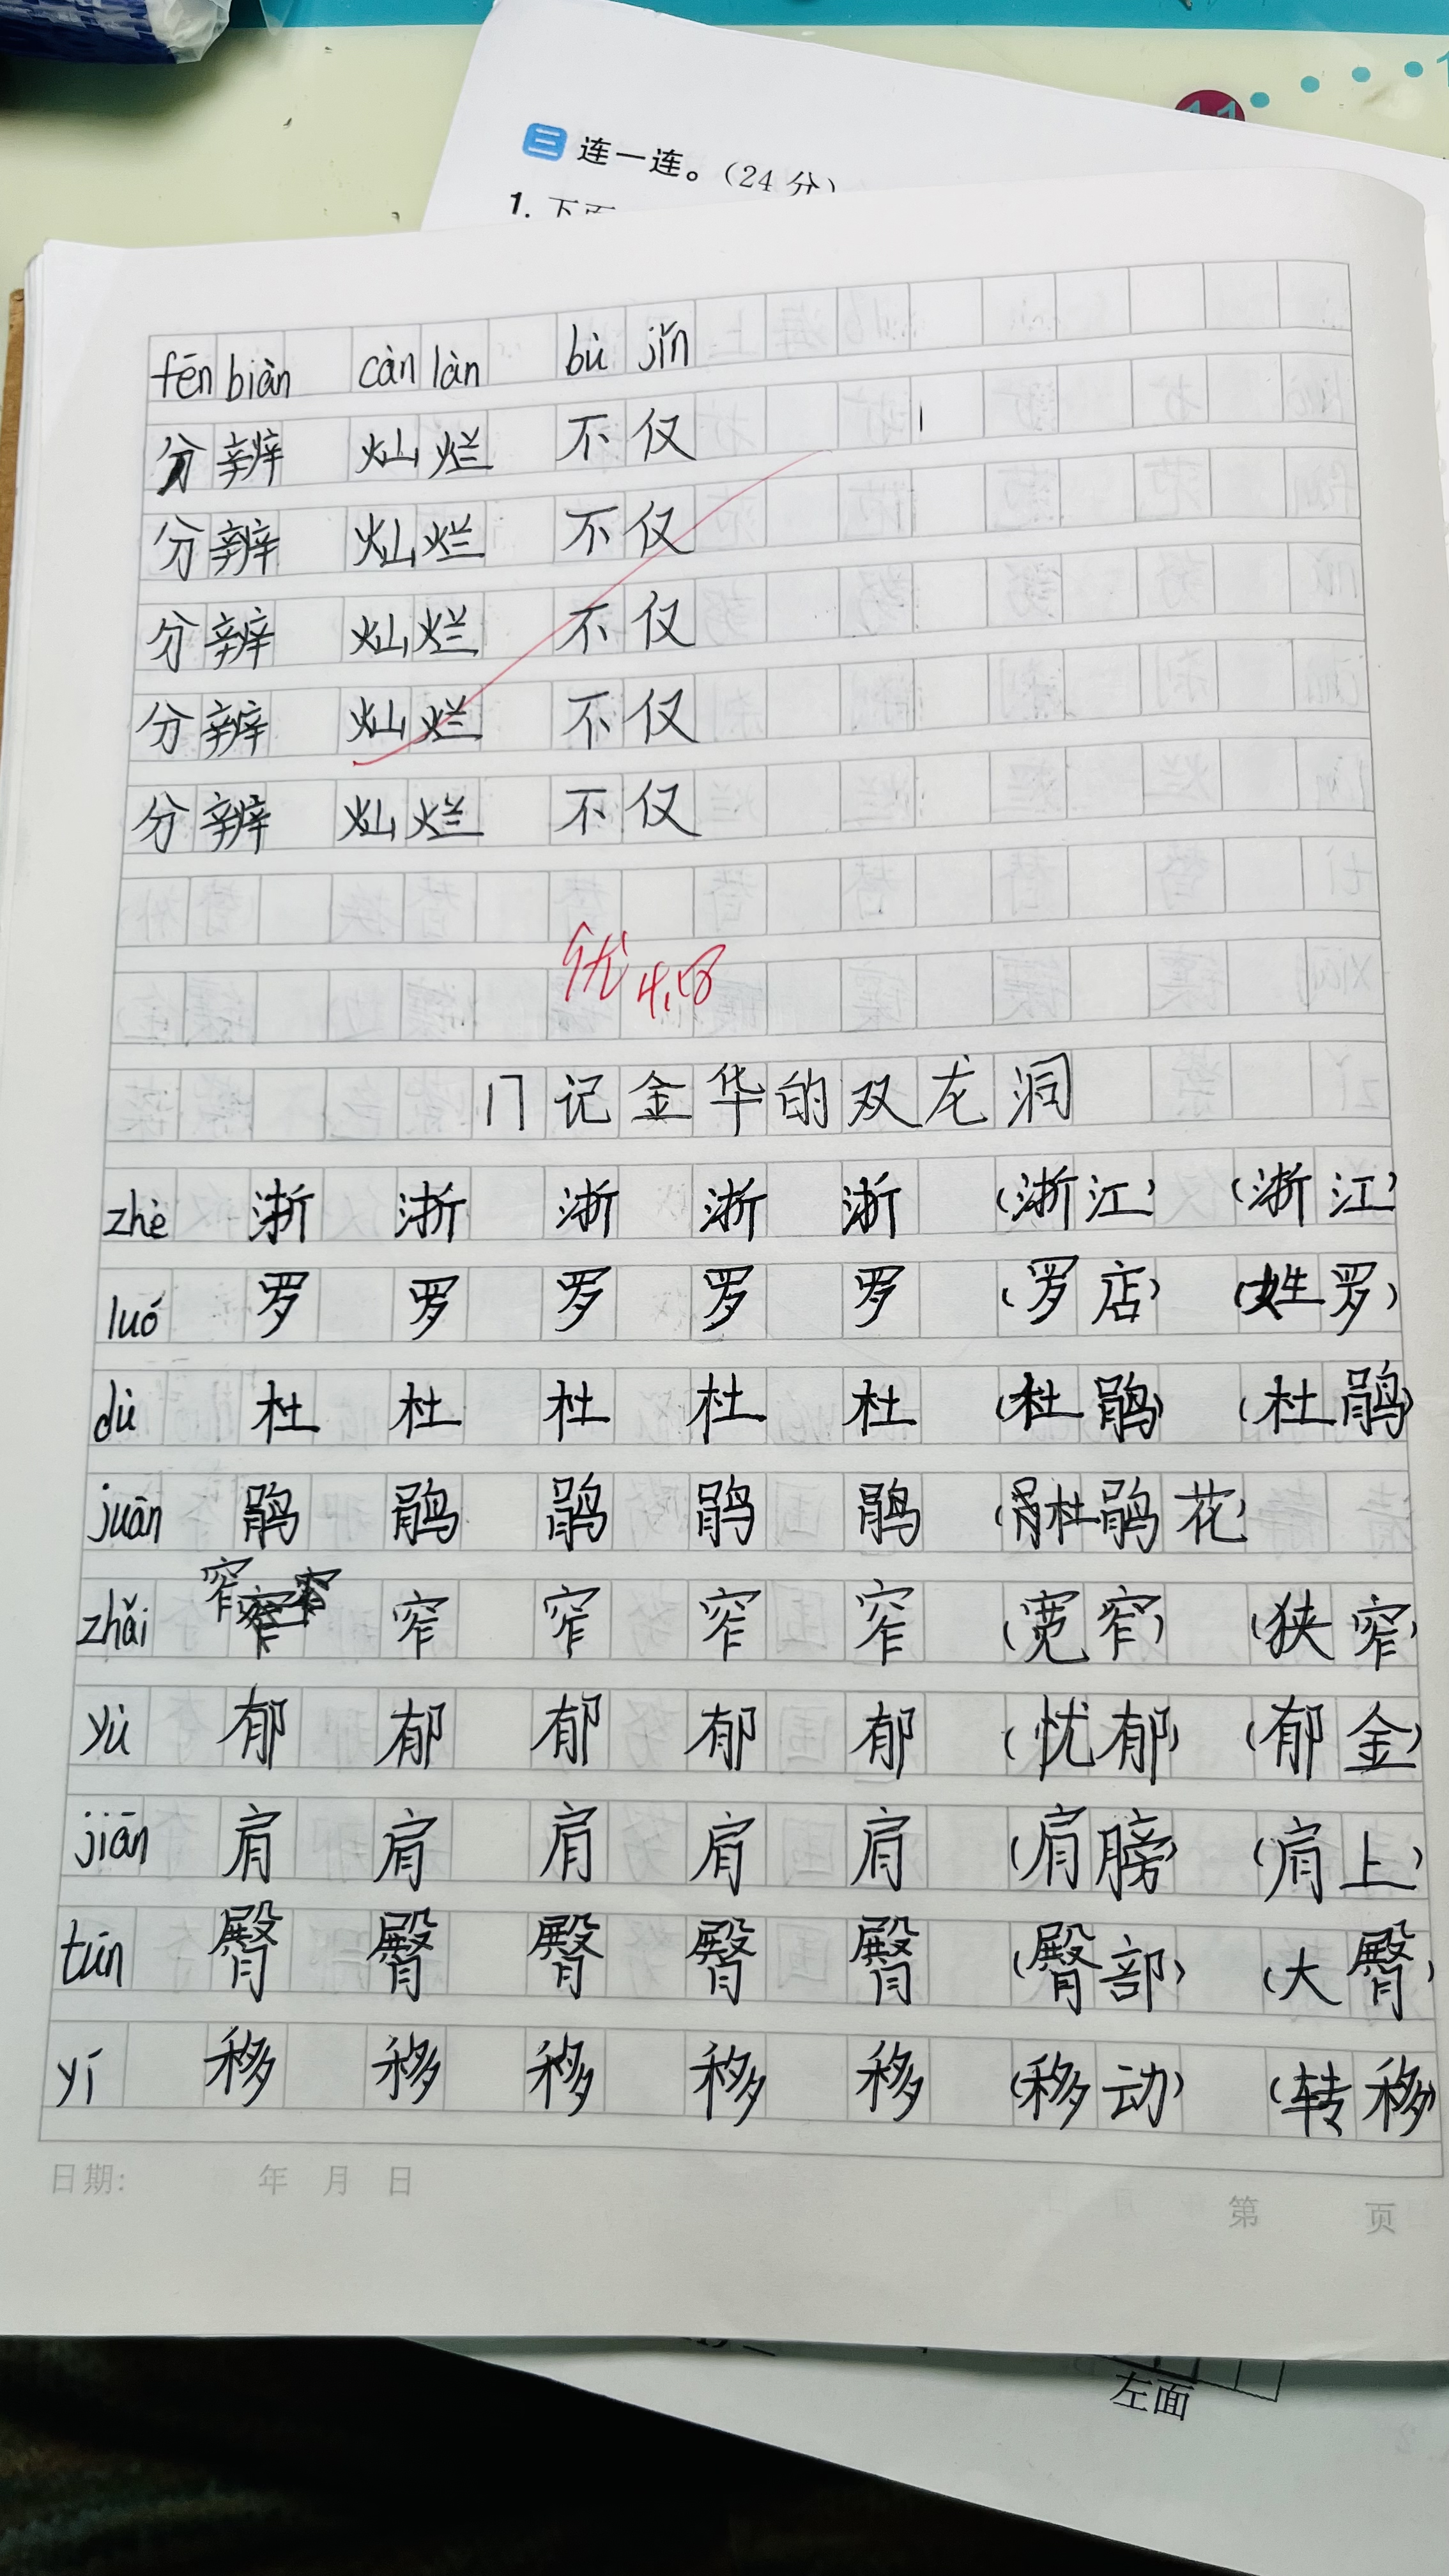 三 连一连。(24分)
1. 下面
fēn biàn càn làn bù jǐn
分辨 灿烂 不仅
分辨 灿烂 不仅
分辨 灿烂 不仅
分辨 灿烂 不仅
分辨 灿烂 不仅
优 4.18
17 记金华的双龙洞
zhè 浙 浙 浙 浙 浙 (浙江) (浙江)
luó 罗 罗 罗 罗 罗 (罗店) (姓罗)
dù 杜 杜 杜 杜 杜 (杜鹃) (杜鹃)
juān 鹃 鹃 鹃 鹃 鹃 (杜鹃花)
zhǎi 窄 窄 窄 窄 窄 (宽窄) (狭窄)
yù 郁 郁 郁 郁 郁 (忧郁) (郁金)
jiān 肩 肩 肩 肩 肩 (肩膀) (肩上)
tún 臀 臀 臀 臀 臀 (臀部) (大臀)
yí 移 移 移 移 移 (移动) (转移)
日期: 年 月 日
第 页
左面